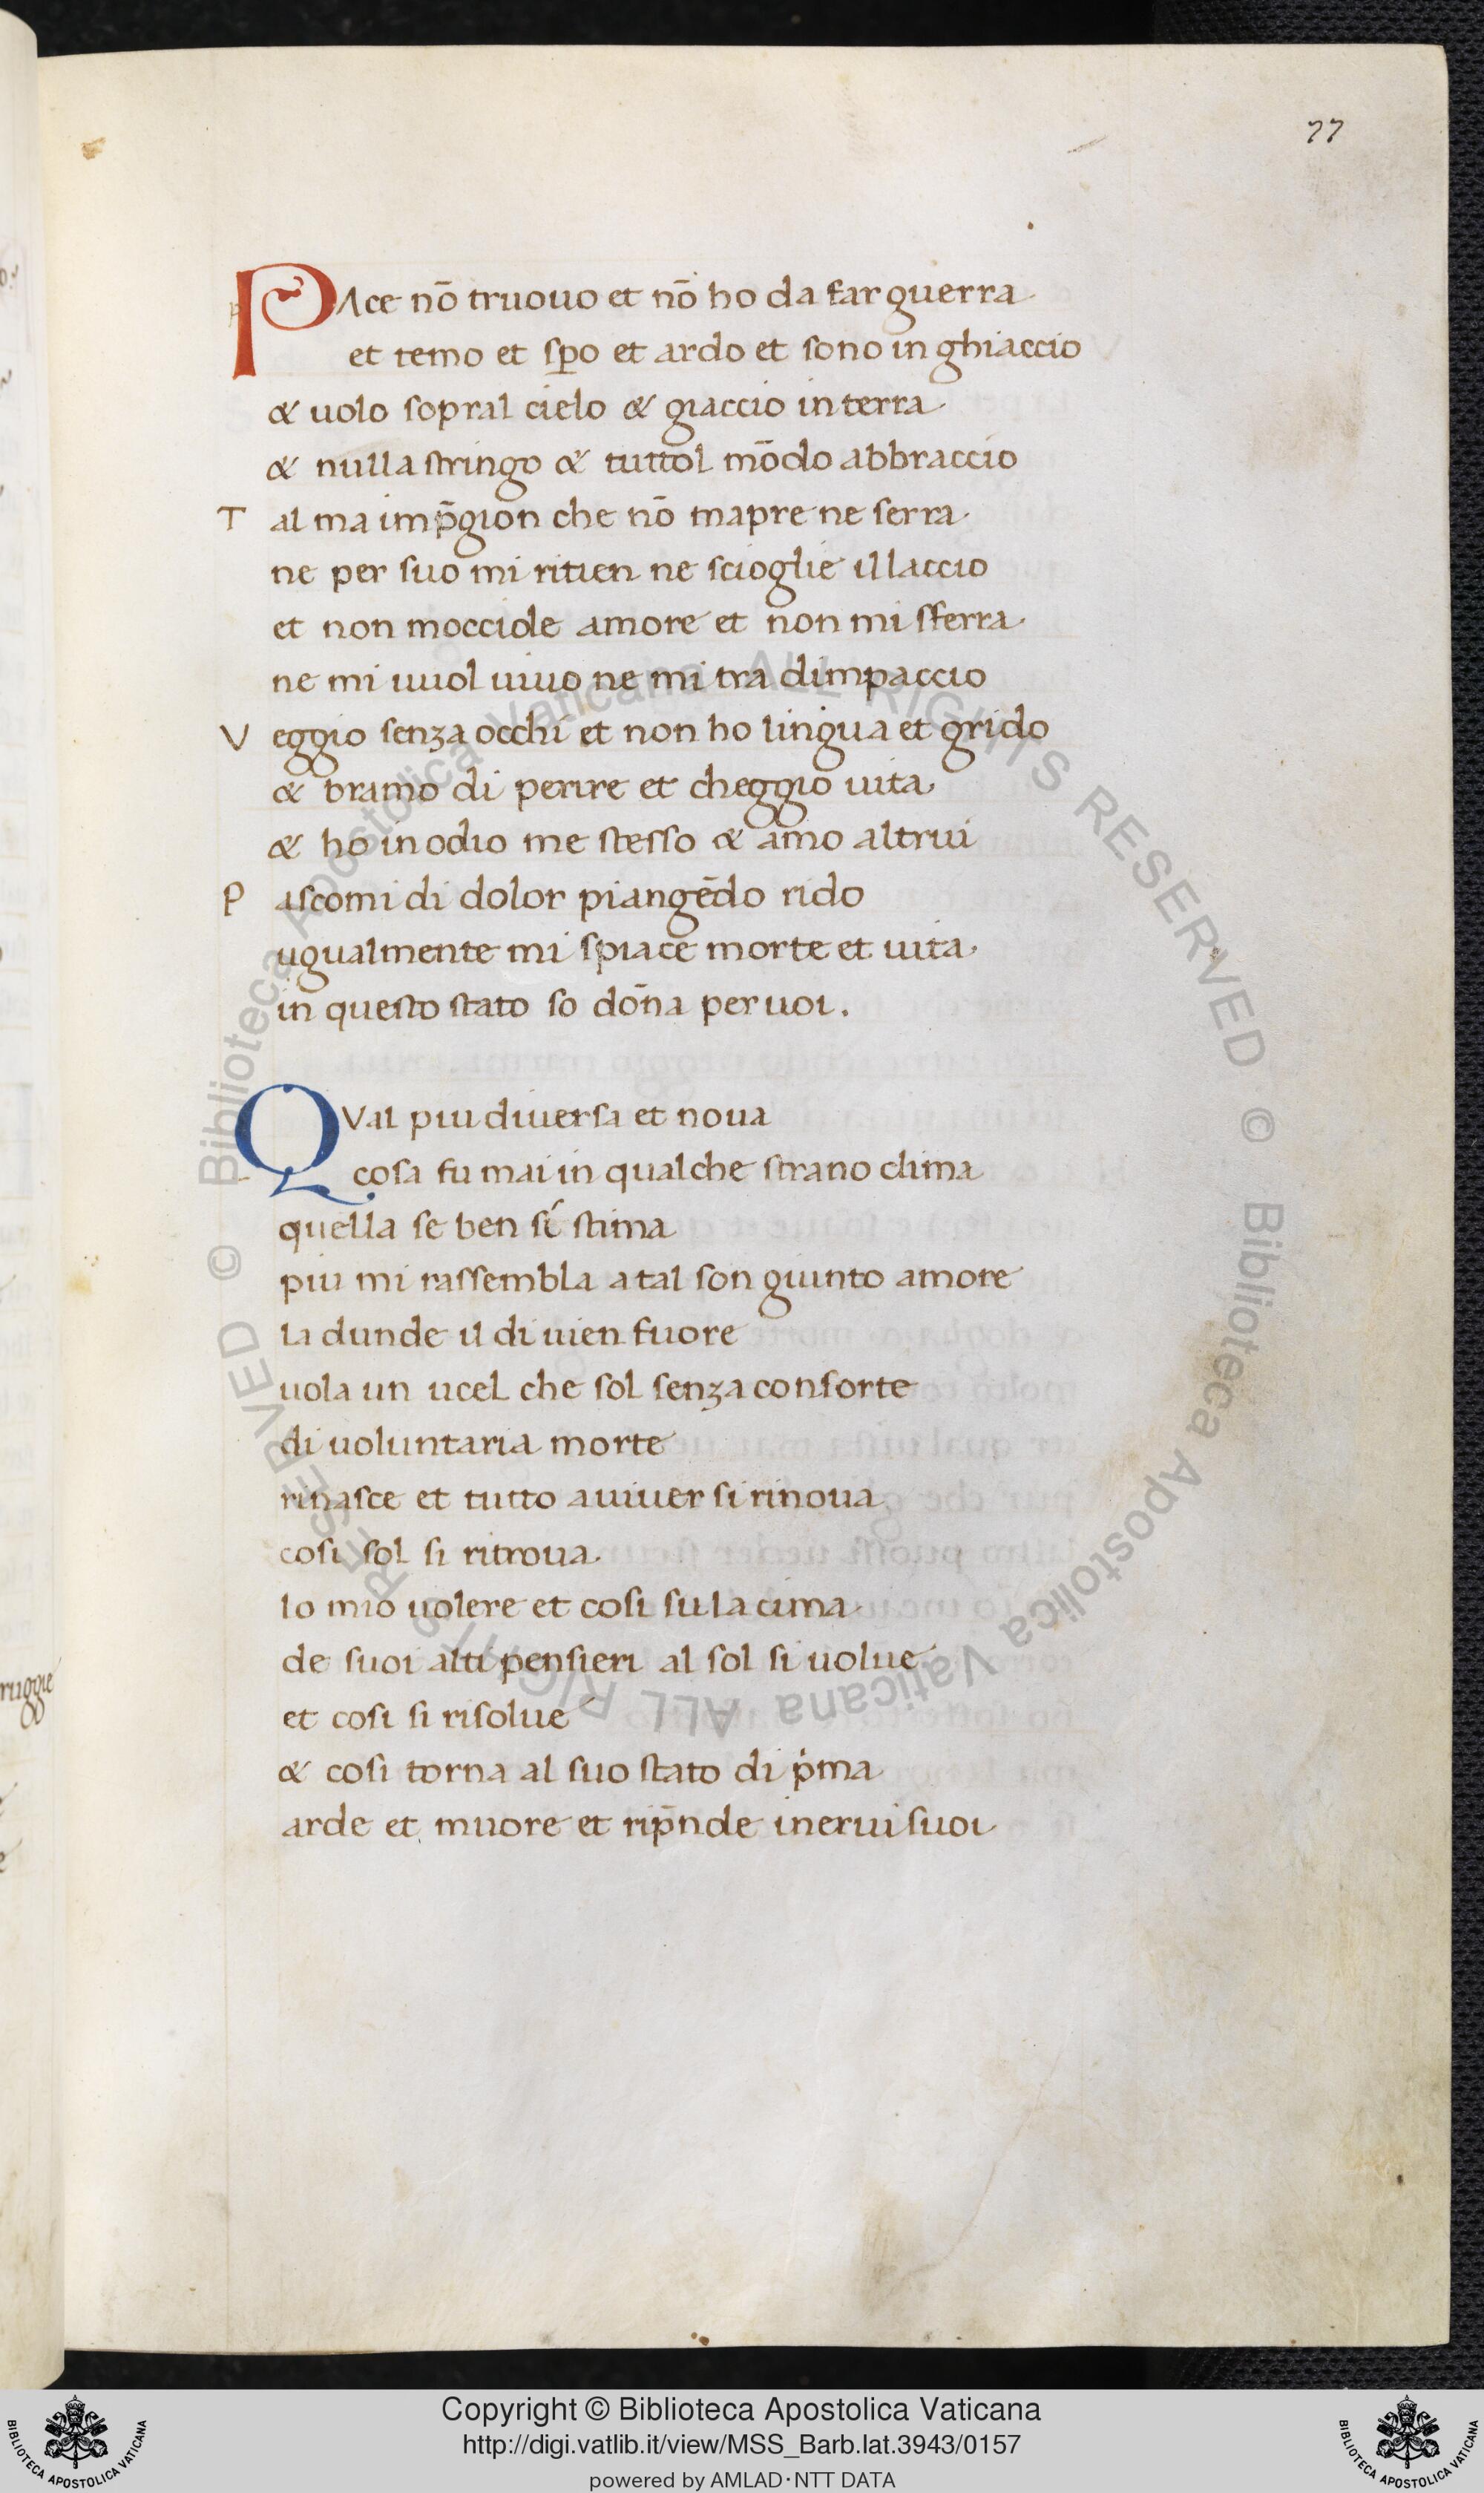 77
PAce nō truouo et nō ho da far guerra
et temo et sp̱o et ardo et sono in ghiaccio
& uolo sopral cielo & giaccio in terra
& nulla stringo & tuttol mōdo abbraccio
T al ma imp̄gion che nō mapre ne serra
ne per suo mi ritien ne scioglie il laccio
et non moccide amore et non mi sferra
ne mi uuol uiuo ne mi tra dimpaccio
V eggio senza occhi et non ho lingua et grido
& bramo di perire et cheggio uita
& ho in odio me stesso & amo altrui
P ascomi di dolor piangēdo rido
ugualmente mi spiace morte et uita
in questo stato so dōna per uoi.
QVal piu diuersa et noua
cosa fu mai in qualche strano clima
quella se ben sí stima
piu mi rassembla a tal son giunto amore
la dunde il di uien fuore
uola un ucel che sol senza consorte
di uoluntaria morte
rinasce et tutto a uiuer si rinoua
cosi sol si ritroua
lo mio uolere et cosi su la cima
de suoi alti pensieri al sol si uolue
et cosi si risolue
& cosi torna al suo stato di pᷤma
arde et muore et rip̄nde i nerui suoi
ruggie
© Biblioteca Apostolica Vaticana ALL RIGHTS RESERVED © Biblioteca Apostolica Vaticana ALL RIGHTS RESERVED
BIBLIOTECA APOSTOLICA VATICANA
Copyright © Biblioteca Apostolica Vaticana
http://digi.vatlib.it/view/MSS_Barb.lat.3943/0157
powered by AMLAD·NTT DATA
BIBLIOTECA APOSTOLICA VATICANA